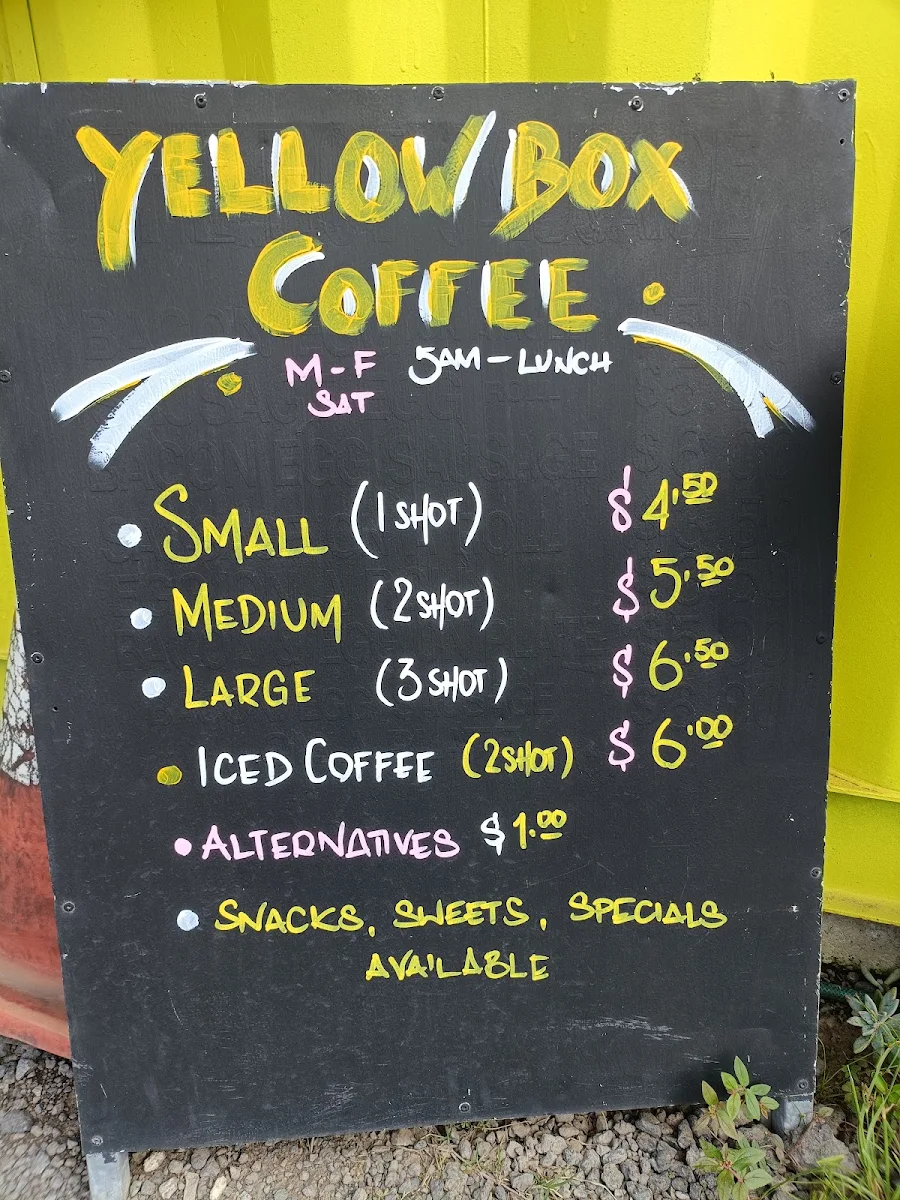 YELLOW BOX
COFFEE
M-F 5AM-LUNCH
SAT
SMALL (1 SHOT) $4.50
MEDIUM (2 SHOT) $5.50
LARGE (3 SHOT) $6.50
ICED COFFEE (2 SHOT) $6.00
ALTERNATIVES $1.00
SNACKS, SWEETS, SPECIALS
AVAILABLE